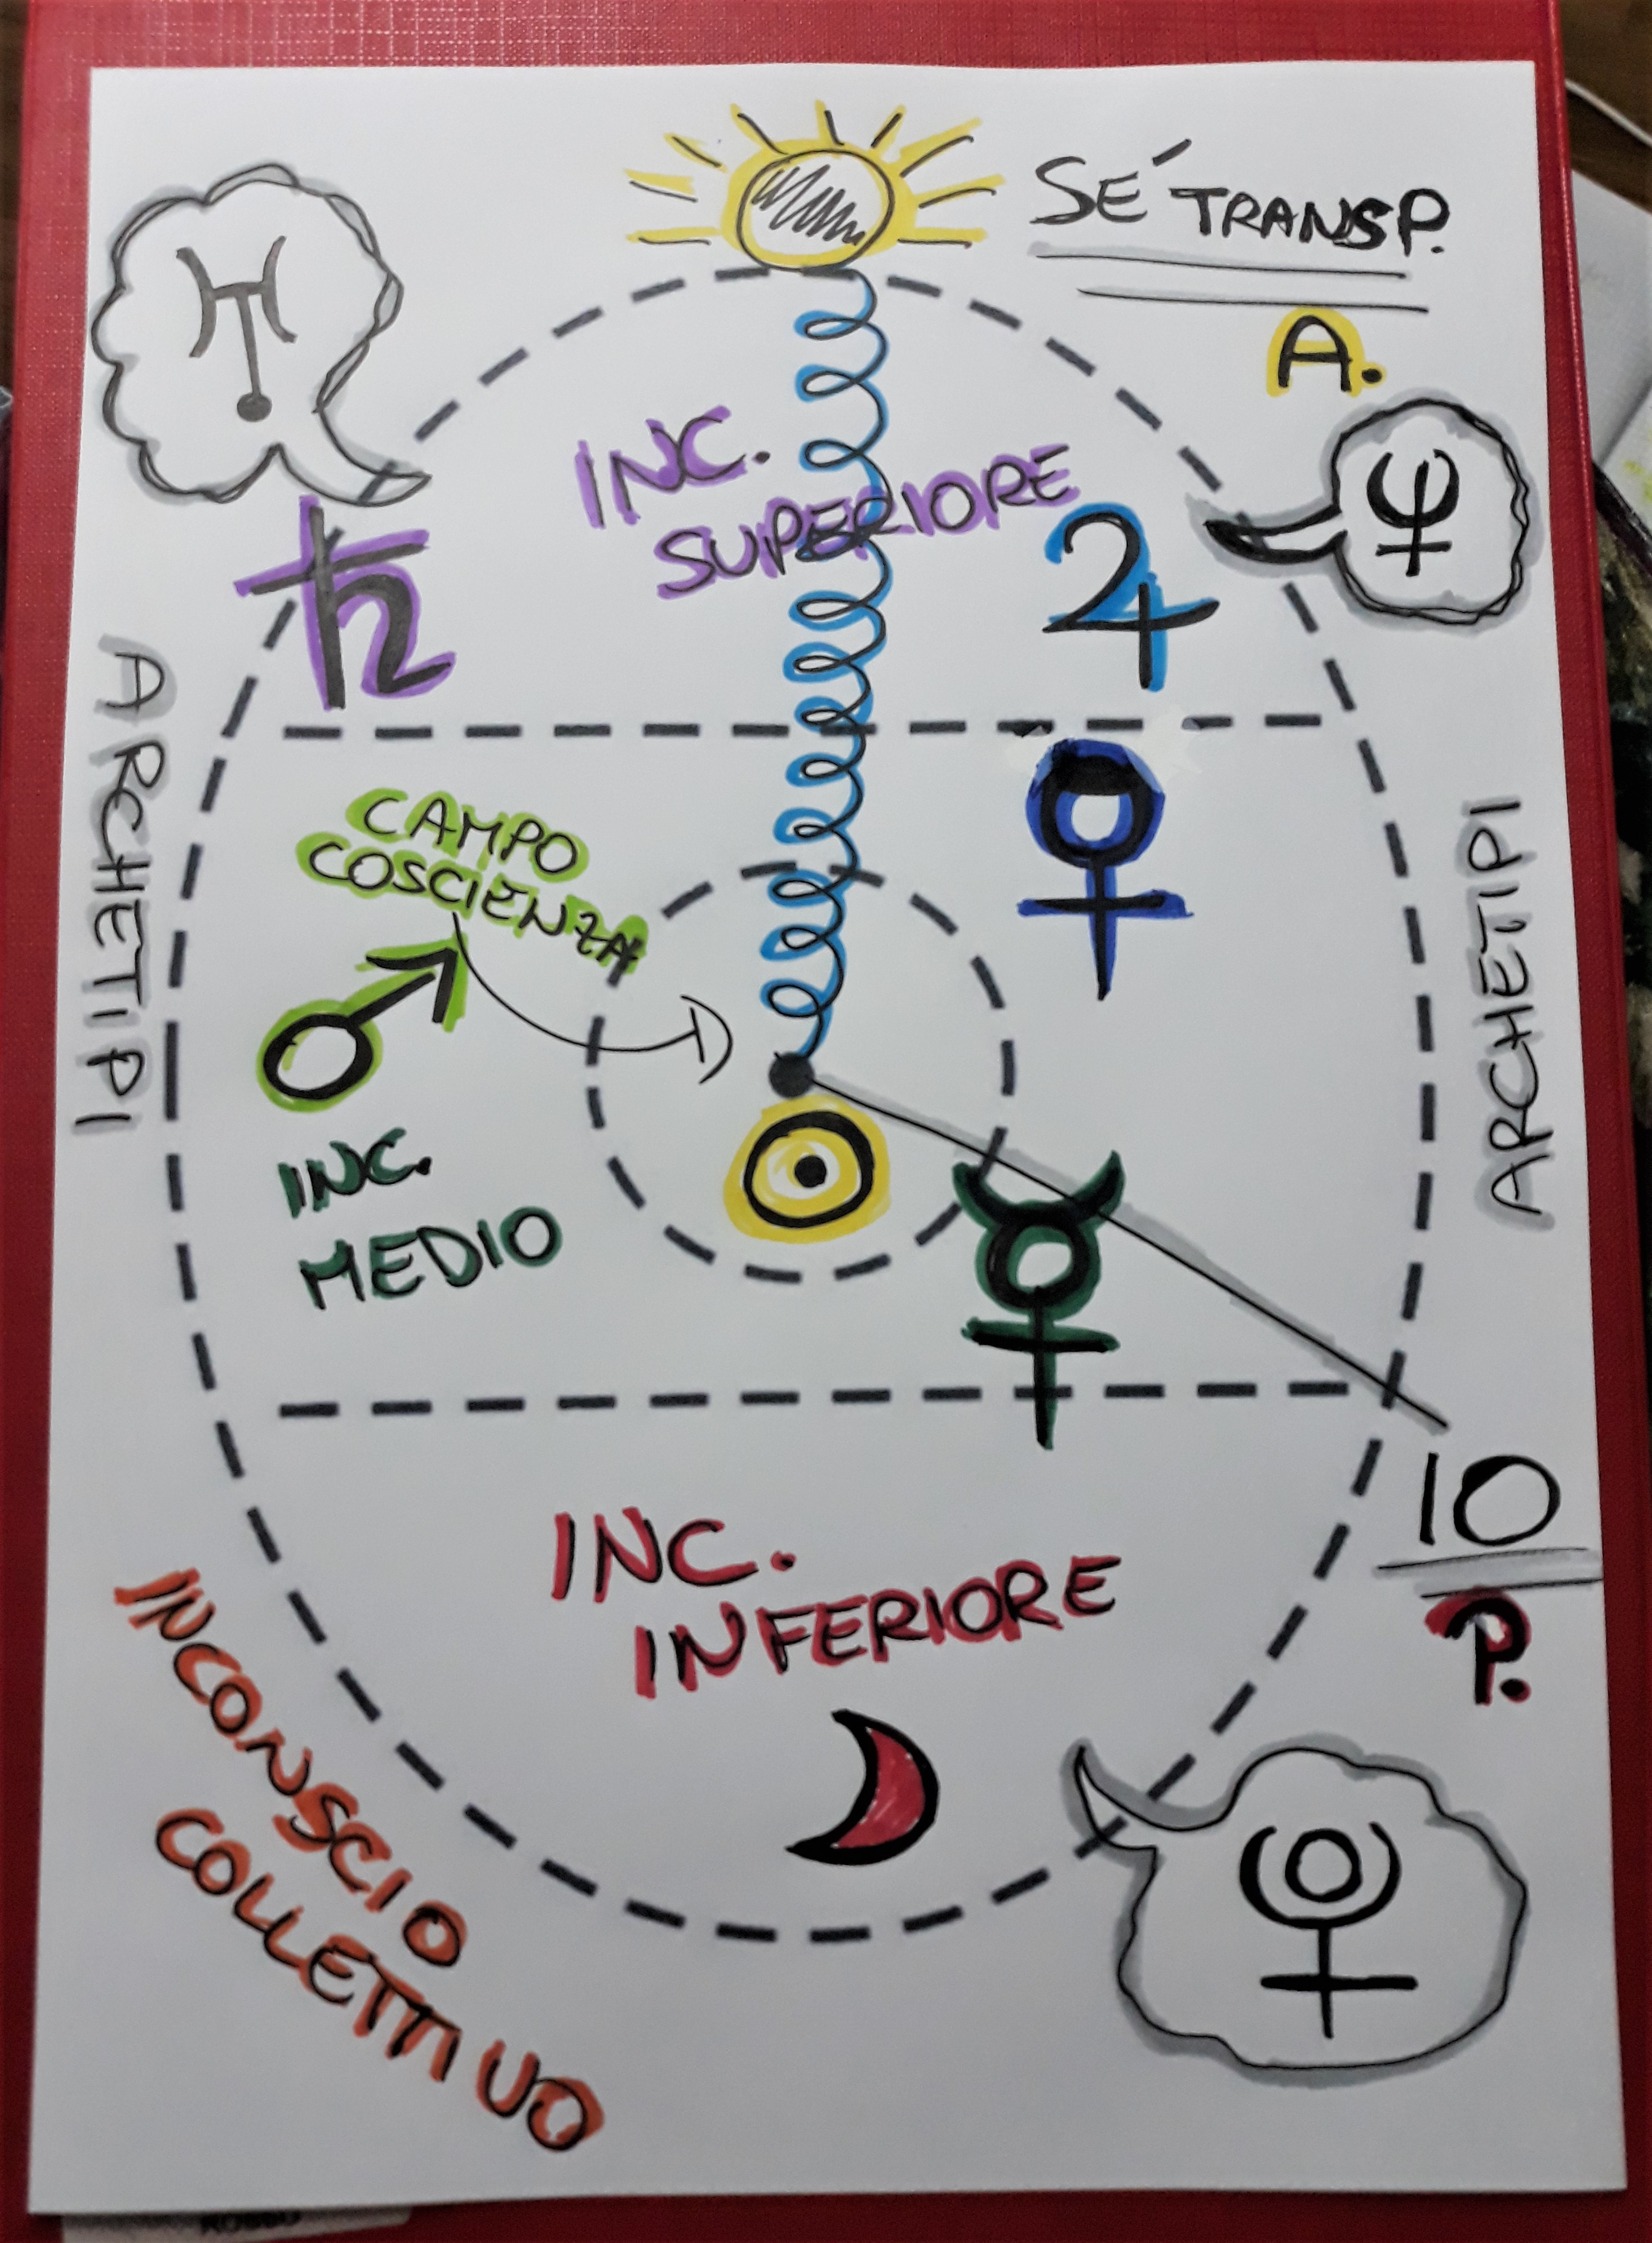 SÉ TRANSP.
A.
INC.
SUPERIORE
ARCHETIPI
CAMPO
COSCIENZA
ARCHETIPI
INC.
MEDIO
IO
P.
INC.
INFERIORE
INCONSCIO
COLLETTIVO